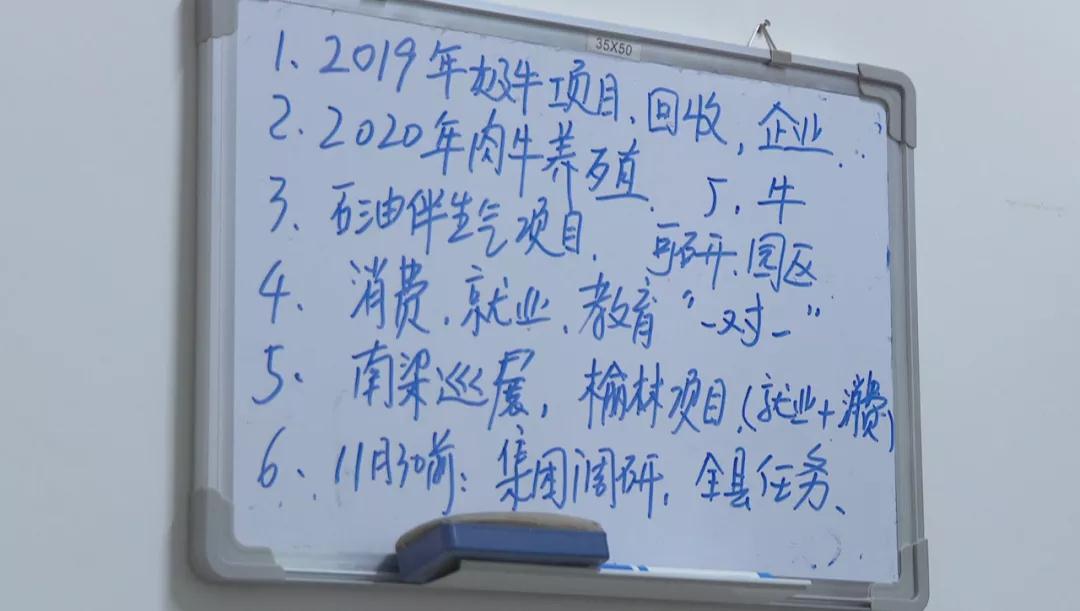 35X50
1、2019年奶牛项目、回收，企业．
2、2020年肉牛养殖． 厂、牛
3、石油伴生气项目． 可研、园区
4、消费、就业、教育“一对一”
5、南梁巡展，榆林项目（就业+消费）
6、11月30前：集团调研，全县任务、